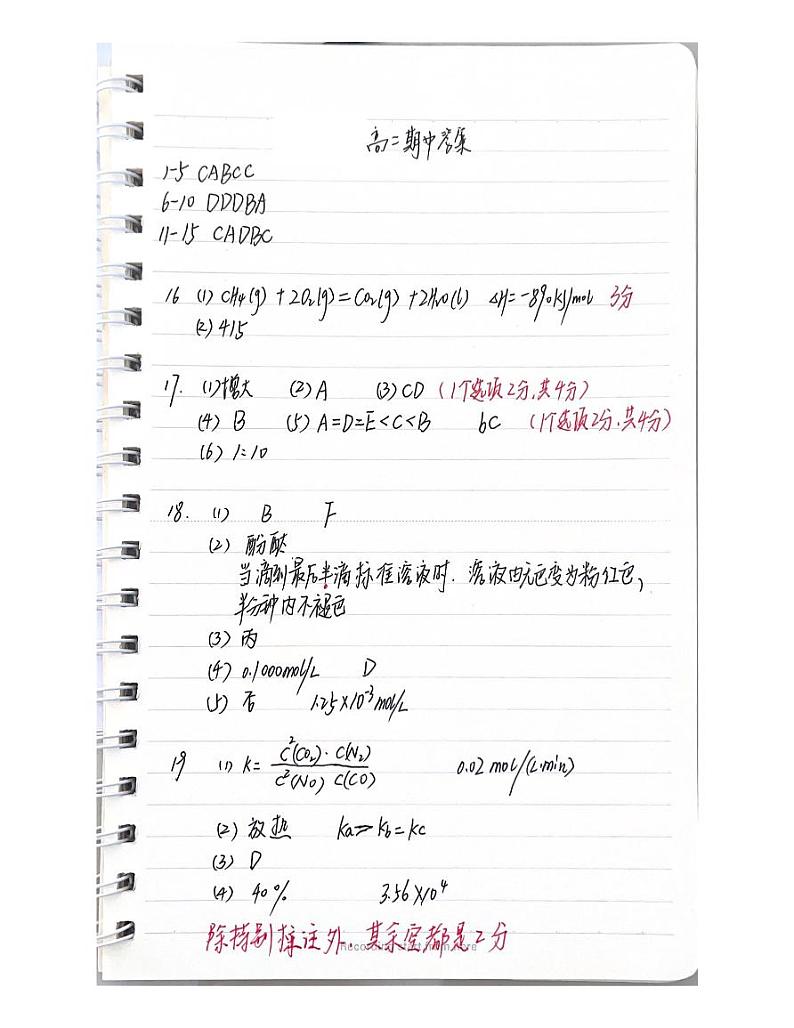 高二期中答案
1-5 CABCC
6-10 DDDBA
11-15 CADBC
16 (1) CH₄(g) + 2O₂(g) = CO₂(g) + 2H₂O(l) ΔH = -890kJ/mol 3分
(2) 415
17. (1) 增大 (2) A (3) CD (1个选项2分,共4分)
(4) B (5) A=D=E<C<B bc (1个选项2分,共4分)
(6) 1:10
18. (1) B F
(2) 酚酞
当滴到最后半滴标准溶液时.溶液由无色变为粉红色,
半分钟内不褪色
(3) 丙
(4) 0.1000mol/L D
(5) 否 1.25×10⁻³mol/L
19 (1) K= c²(CO₂)·c(N₂) / c²(NO) c(CO) 0.02 mol/(L·min)
(2) 放热 Ka>Kb=Kc
(3) D
(4) 40% 3.56×10⁴
除特别标注外,其余空都是2分